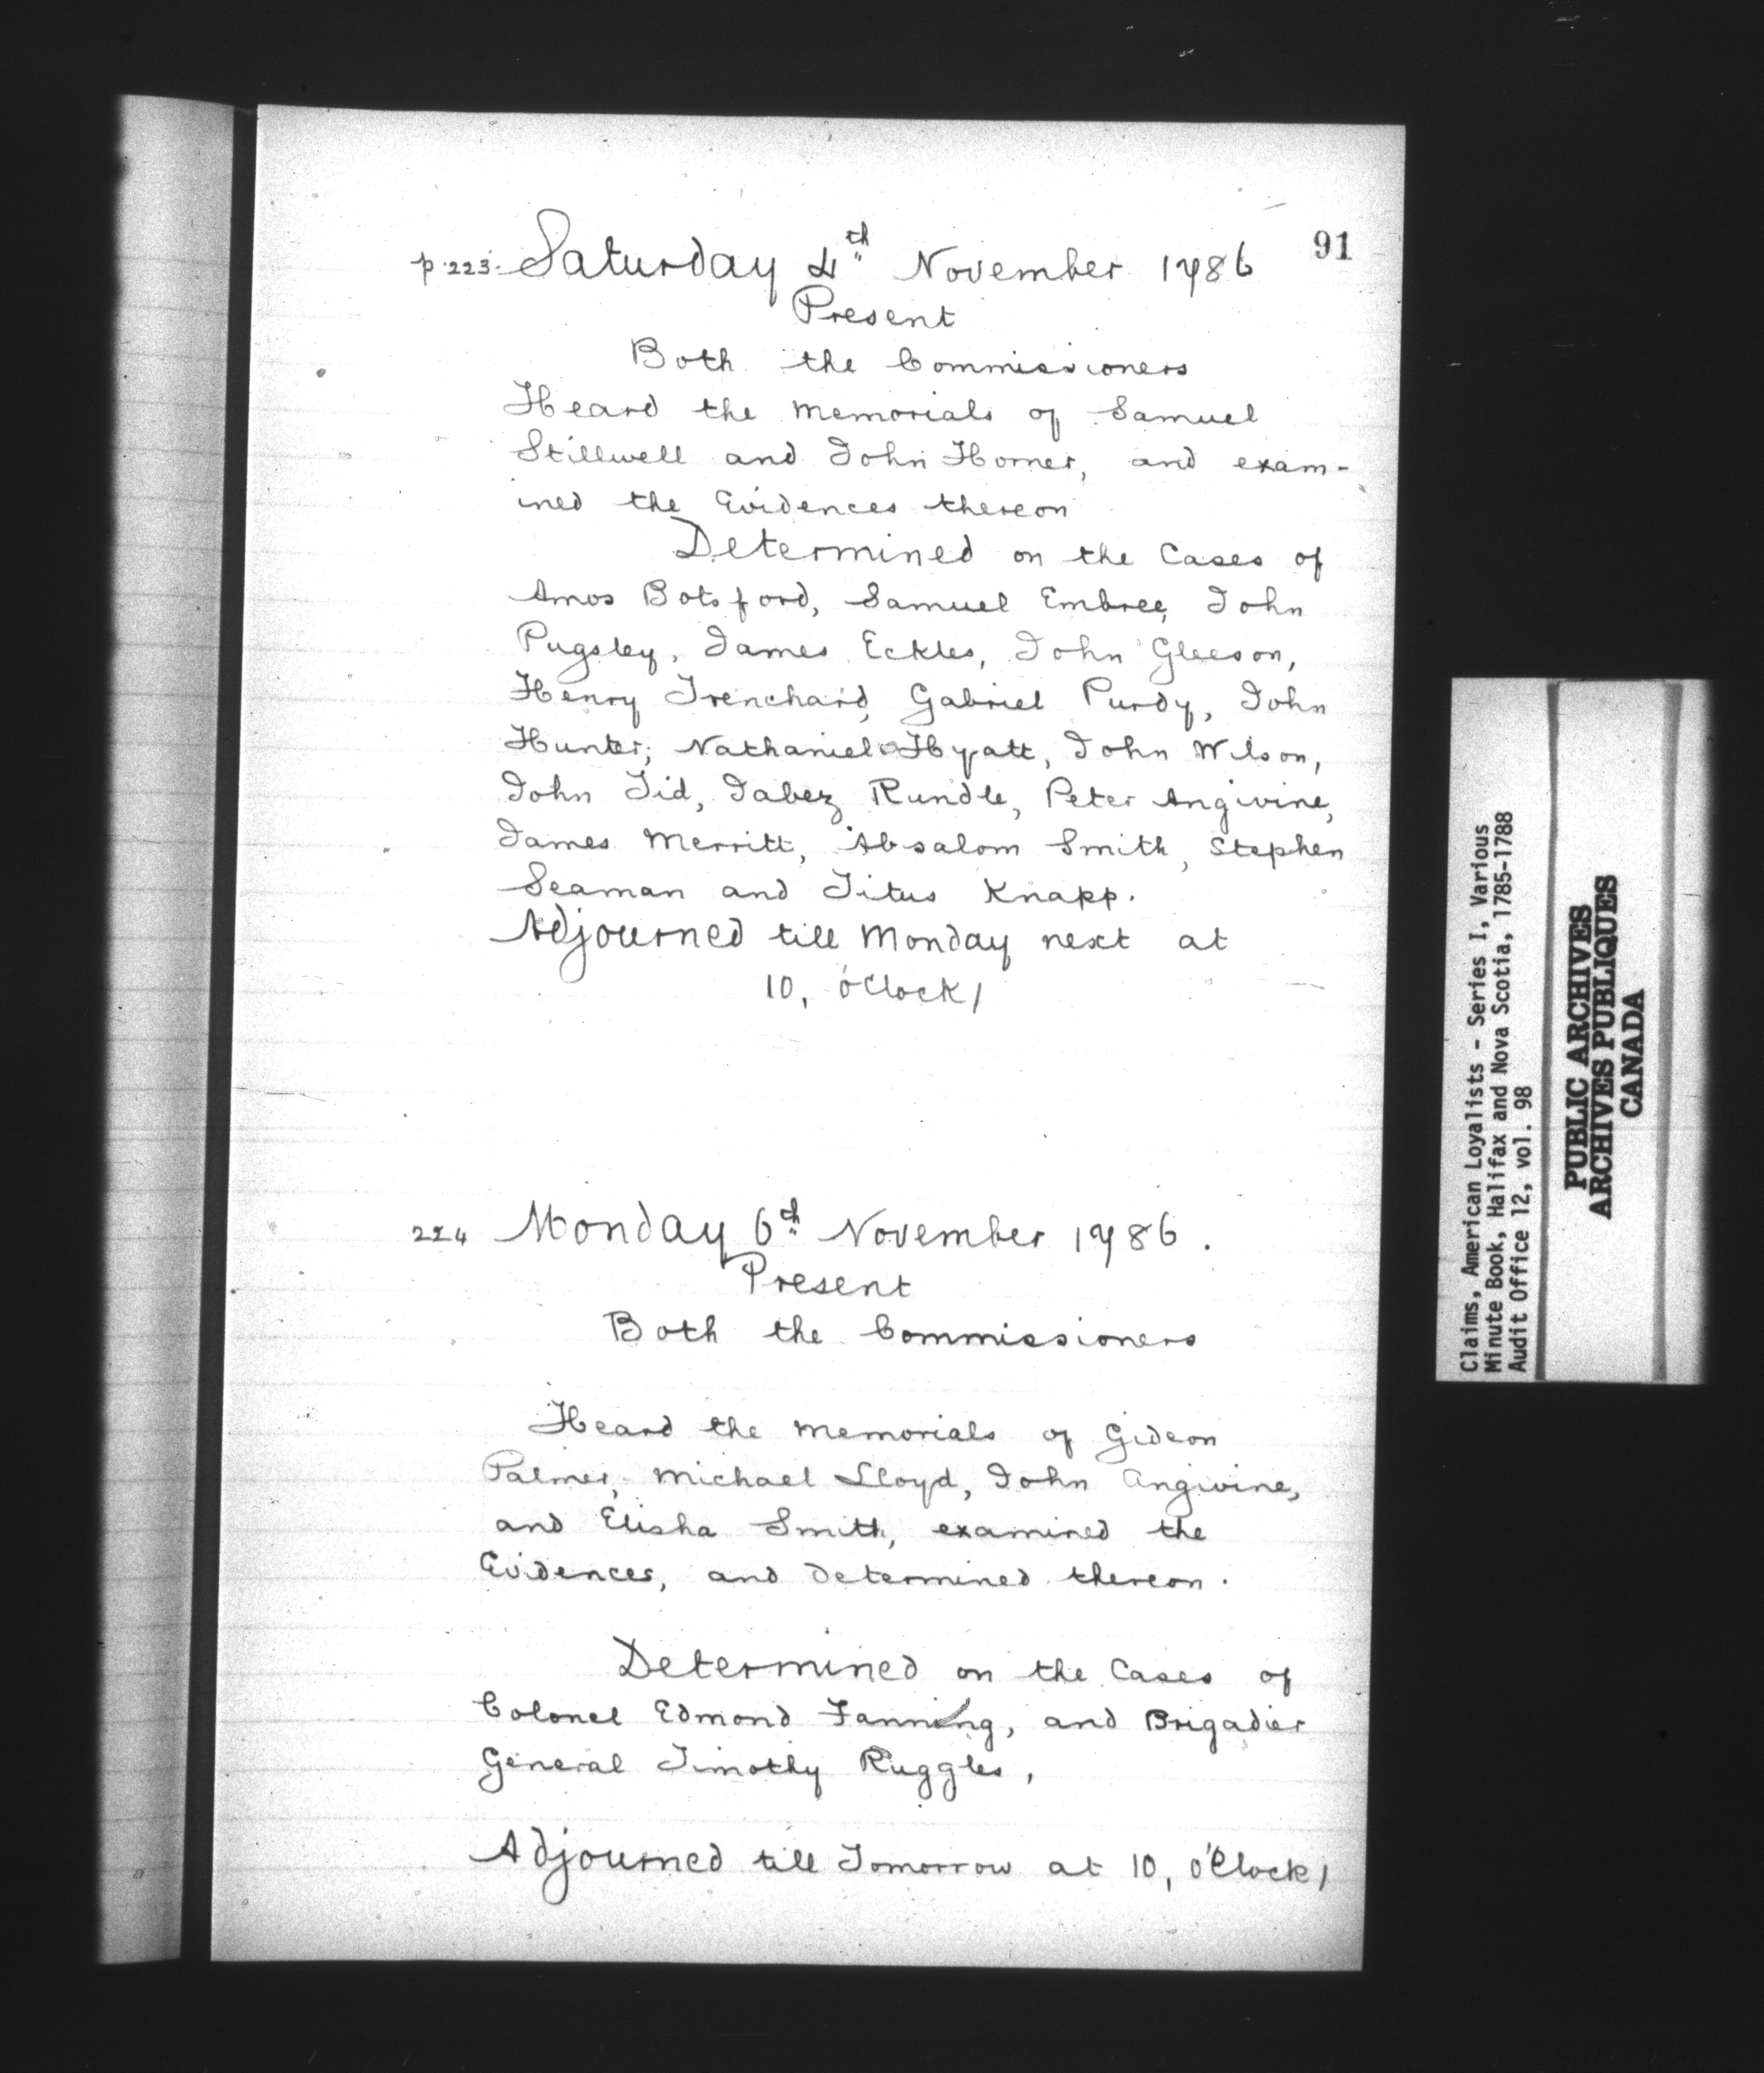 91
p. 223. Saturday 4th November 1786
Present
Both the Commissioners
Heard the Memorials of Samuel
Stillwell and John Horner, and exam-
ined the Evidences thereon
Determined on the Cases of
Amos Botsford, Samuel Embree, John
Pugsley, James Eckles, John Gleeson,
Henry Trenchard, Gabriel Purdy, John
Hunter, Nathaniel Hyatt, John Wilson,
John Tid, Jabez Rundle, Peter Angivine,
James Merritt, Absalom Smith, Stephen
Seaman and Titus Knapp.
Adjourned till Monday next at
10, o'Clock/
224 Monday 6th November 1786.
Present
Both the Commissioners
Heard the Memorials of Gideon
Palmer, Michael Lloyd, John Angivine,
and Elisha Smith, examined the
Evidences, and Determined thereon.
Determined on the Cases of
Colonel Edmond Fanning, and Brigadier
General Timothy Ruggles,
Adjourned till Tomorrow at 10, o'Clock/
Claims, American Loyalists - Series I, Various
Minute Book, Halifax and Nova Scotia, 1785-1788
Audit Office 12, vol. 98
PUBLIC ARCHIVES
ARCHIVES PUBLIQUES
CANADA